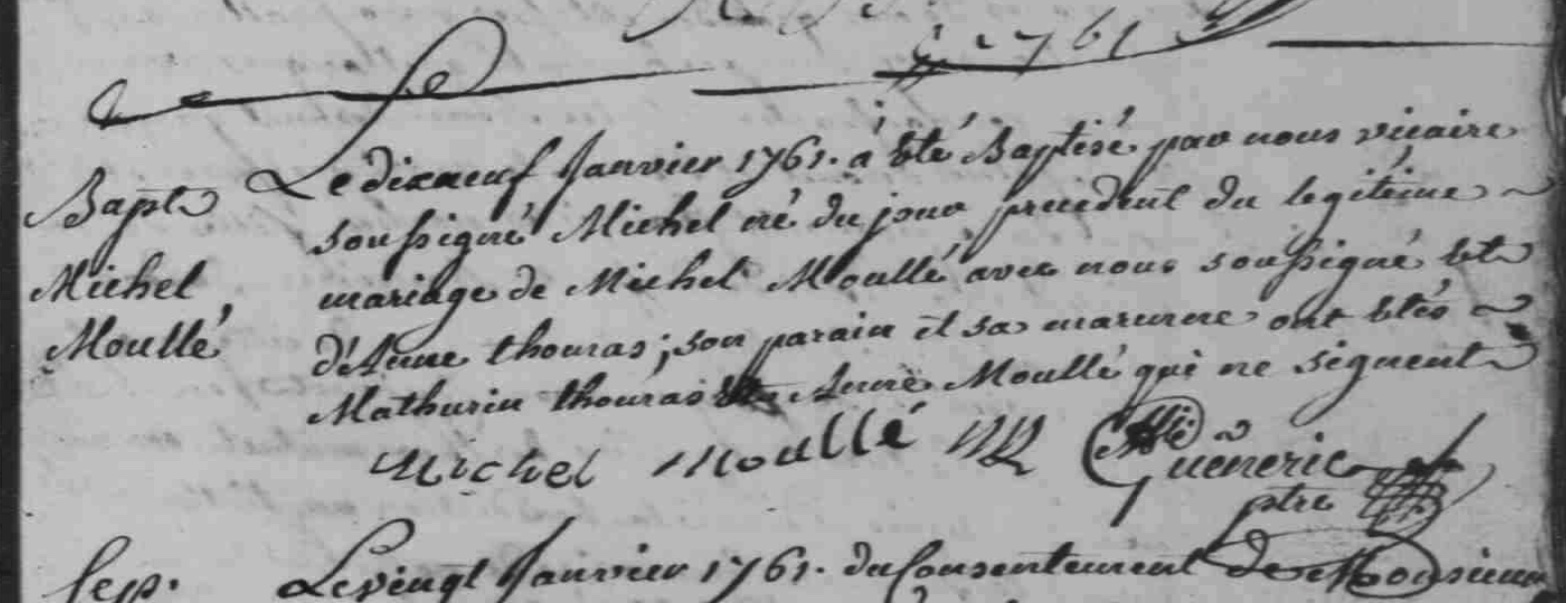 1761
Bapt
Michel
Moullé
Le dixneuf Janvier 1761. á èté Baptisé par nous vicaire
soussigné Michel né du jour precedent du legitime
mariage de Michel Moullé avec nous soussigné et
d'Anne thomas; son parain et sa maraine ont etés
Mathurin thomas et Anne Moullé qui ne signent
Michel Moullé
Gueneric
ptre
Sep. Le vingt Janvier 1761. du Consentement de Monsieur